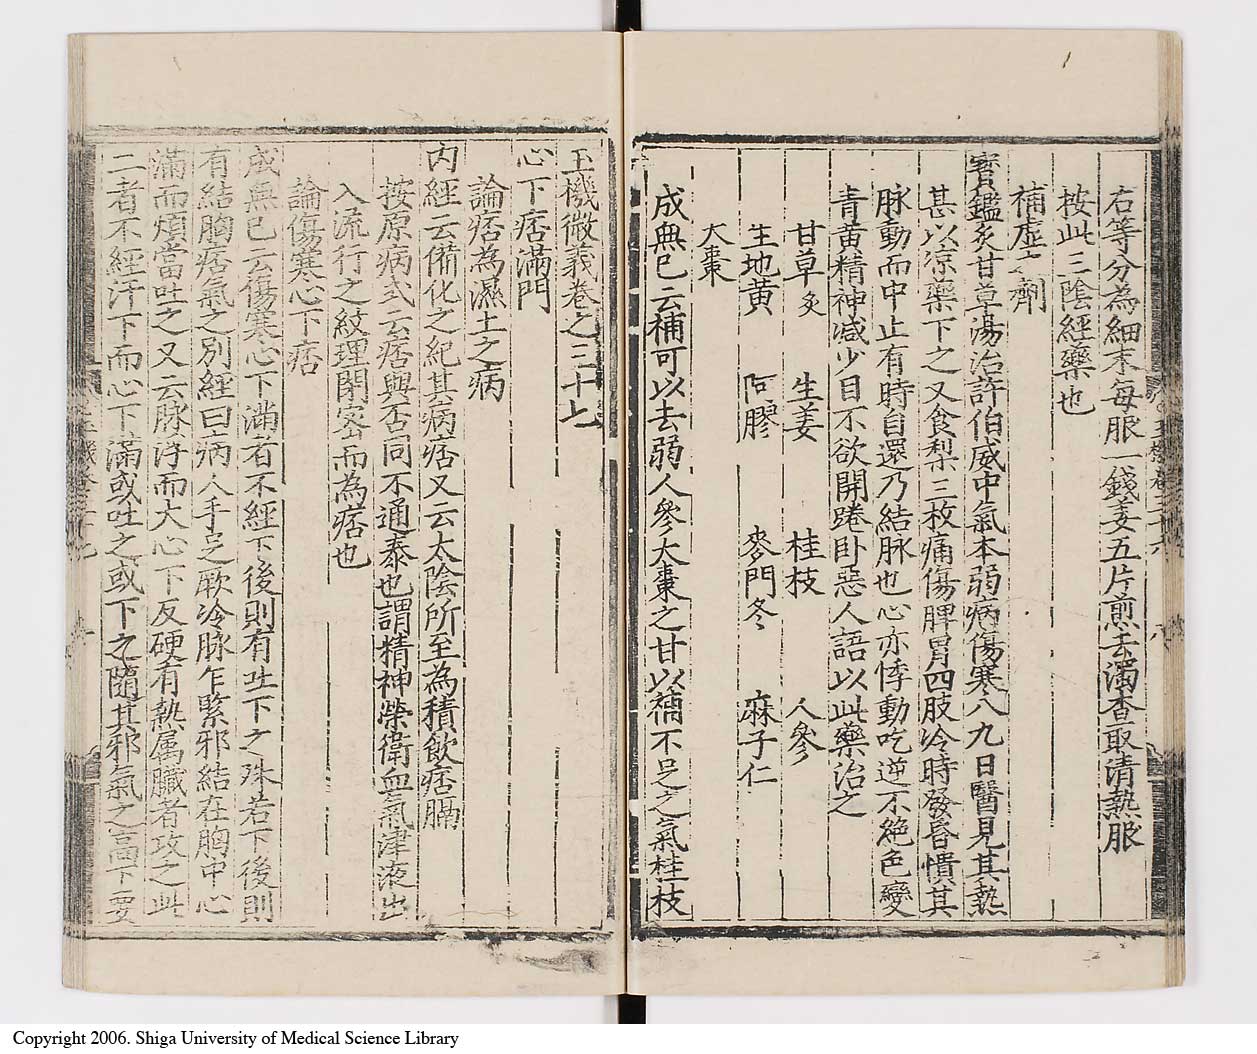 右等分為細末每服一錢姜五片煎去濁查取清熱服
按此三陰經藥也
補虛之劑
寶鑑炙甘草湯治許伯威中氣本弱病傷寒八九日醫見其熱
甚以凉藥下之又食梨三枚痛傷脾胃四肢冷時發昏憒其
脉動而中止有時自還乃結脉也心亦悸動吃逆不絶色變
青黄精神减少目不欲開踡卧惡人語以此藥治之
甘草炙 生姜 桂枝 人參
生地黄 阿膠 麥門冬 麻子仁
大棗
成無已云補可以去弱人參大棗之甘以補不足之氣桂枝
玉機微義卷之三十七
心下痞滿門
論痞為濕土之病
内經云備化之紀其病痞又云太陰所至為積飲痞膈
按原病式云痞與否同不通泰也謂精神榮衛血氣津液出
入流行之紋理閉密而為痞也
論傷寒心下痞
成無已云傷寒心下滿者不經下後則有吐下之殊若下後則
有結胸痞氣之別經曰病人手足厥冷脉乍緊邪結在胸中心
滿而煩當吐之又云脉浮而大心下反硬有熱属臟者攻之此
二者不經汗下而心下滿或吐之或下之隨其邪氣之高下要
Copyright 2006. Shiga University of Medical Science Library